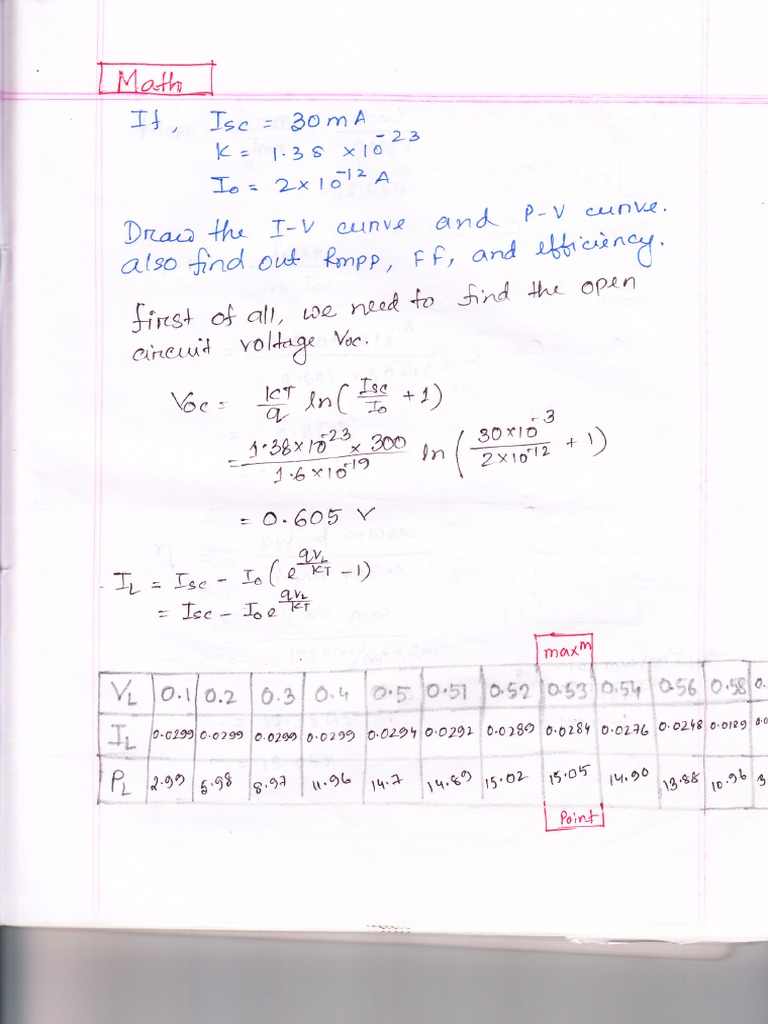 Math
If, Isc = 30 mA
K = 1.38 × 10^-23
Io = 2 × 10^-12 A
Draw the I-V curve and P-V curve.
also find out Rmpp, FF, and efficiency.
first of all, we need to find the open
circuit voltage Voc.
Voc = KT/q ln (Isc/Io + 1)
= 1.38×10^-23 × 300 / 1.6×10^-19 ln (30×10^-3 / 2×10^-12 + 1)
= 0.605 V
IL = Isc - Io (e^qVL/KT - 1)
= Isc - Io e^qVL/KT
max^m
VL 0.1 0.2 0.3 0.4 0.5 0.51 0.52 0.53 0.54 0.56 0.58 0.
IL 0.0299 0.0299 0.0299 0.0299 0.0294 0.0292 0.0289 0.0284 0.0276 0.0248 0.0189 0.0
PL 2.99 5.98 8.97 11.96 14.7 14.89 15.02 15.05 14.90 13.88 10.96 3
Point